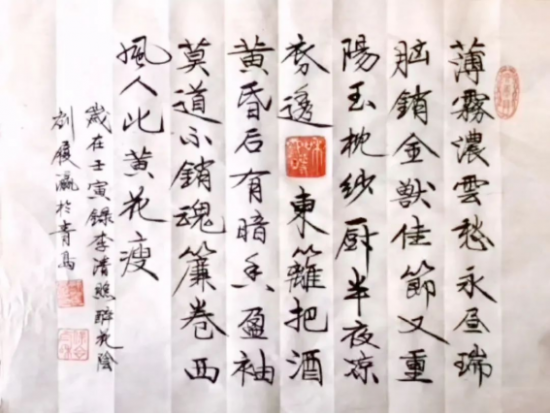 薄霧濃雲愁永昼瑞
脑銷金獸佳節又重
陽玉枕紗厨半夜凉
初透東籬把酒
黄昏后有暗香盈袖
莫道不銷魂簾卷西
風人比黄花瘦
歲在壬寅錄李清照醉花陰
劉履瀛於青島